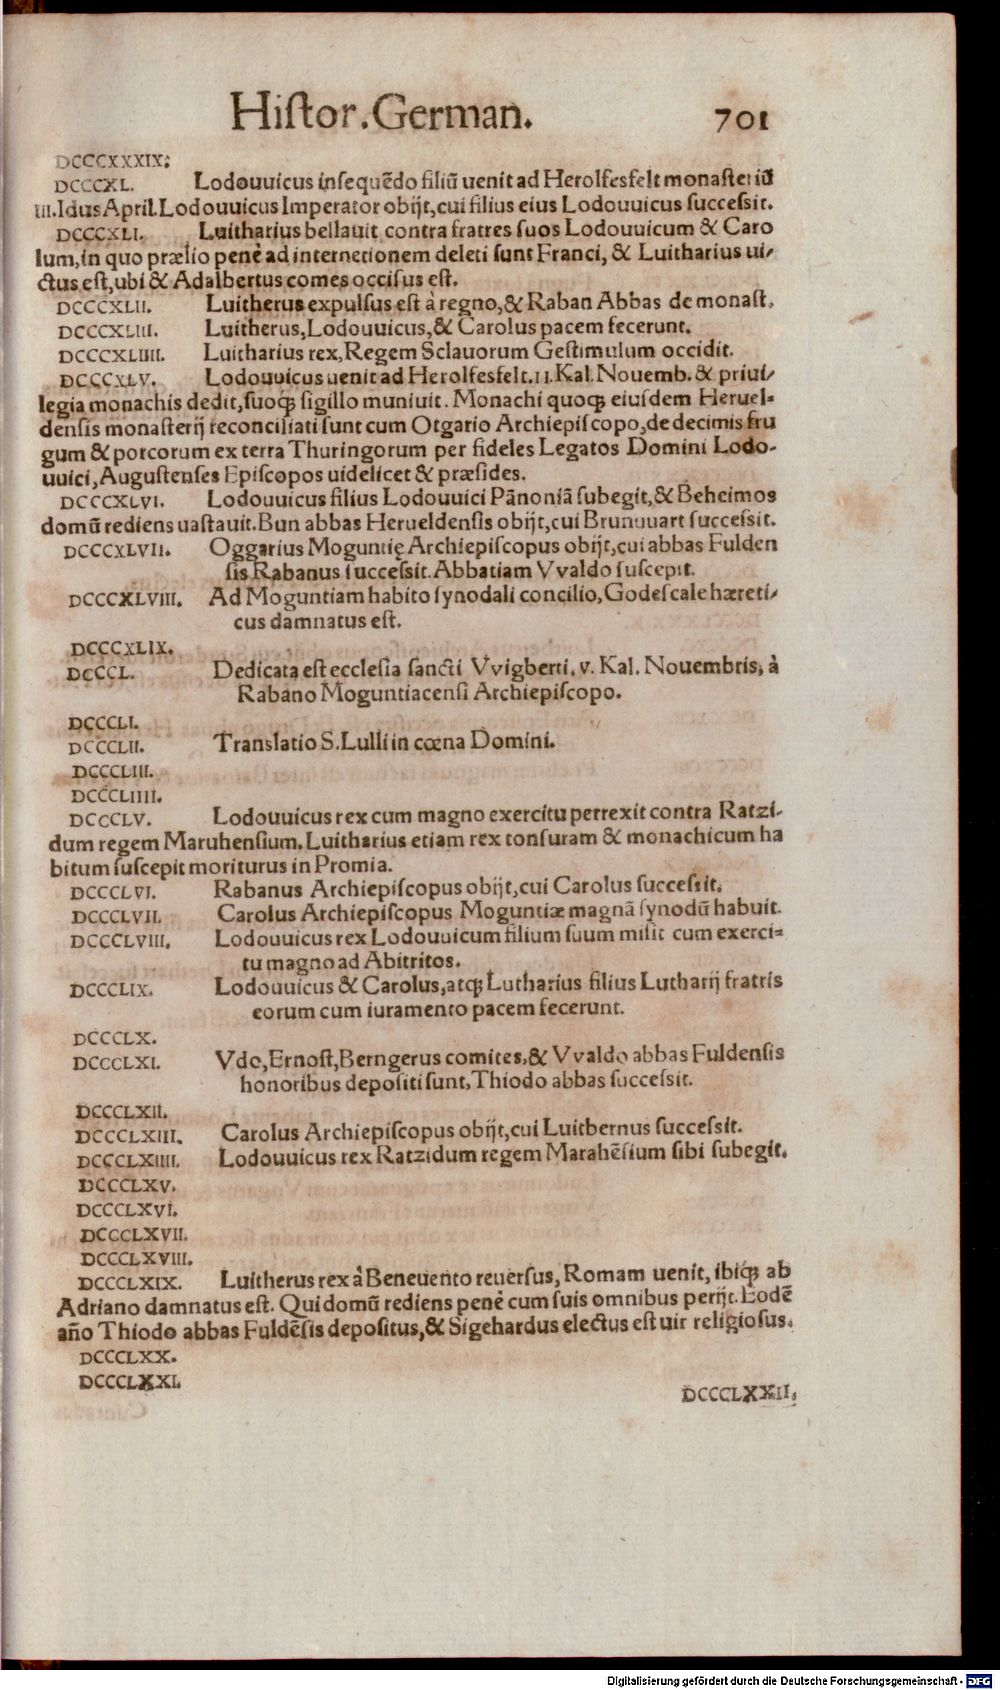 Hiſtor. German. 701
DCCCXXXIX.
DCCCXL. Lodouuicus inſequẽdo filiũ uenit ad Herolfesfelt monaſteriũ
III. Idus April. Lodouuicus Imperator obijt, cui filius eius Lodouuicus ſucceſsit.
DCCCXLI. Luitharius bellauit contra fratres ſuos Lodouuicum & Caro
lum, in quo prælio penè ad internetionem deleti ſunt Franci, & Luitharius ui-
ctus eſt, ubi & Adalbertus comes occiſus eſt.
DCCCXLII. Luitherus expulſus eſt à regno, & Raban Abbas de monaſt.
DCCCXLIII. Luitherus, Lodouuicus, & Carolus pacem fecerunt.
DCCCXLIIII. Luitharius rex, Regem Sclauorum Geſtimulum occidit.
DCCCXLV. Lodouuicus uenit ad Herolfesfelt. 11. Kal. Nouemb. & priui-
legia monachis dedit, ſuoqꝫ ſigillo muniuit. Monachi quoqꝫ eiuſdem Heruel-
denſis monaſterij reconciliati ſunt cum Otgario Archiepiſcopo, de decimis fru
gum & porcorum ex terra Thuringorum per fideles Legatos Domini Lodo-
uuici, Auguſtenſes Epiſcopos uidelicet & præſides.
DCCCXLVI. Lodouuicus filius Lodouuici Pãnoniã ſubegit, & Beheimos
domũ rediens uaſtauit. Bun abbas Herueldenſis obijt, cui Brunuuart ſucceſsit.
DCCCXLVII. Oggarius Moguntię Archiepiſcopus obijt, cui abbas Fulden
ſis Rabanus ſucceſsit. Abbatiam Vvaldo ſuſcepit.
DCCCXLVIII. Ad Moguntiam habito ſynodali concilio, Godeſcale hæreti-
cus damnatus eſt.
DCCCXLIX.
DCCCL. Dedicata eſt eccleſia ſancti Vvigberti. v. Kal. Nouembris, à
Rabano Moguntiacenſi Archiepiſcopo.
DCCCLI.
DCCCLII. Translatio S. Lulli in cœna Domini.
DCCCLIII.
DCCCLIIII.
DCCCLV. Lodouuicus rex cum magno exercitu perrexit contra Ratzi-
dum regem Maruhenſium. Luitharius etiam rex tonſuram & monachicum ha
bitum ſuſcepit moriturus in Promia.
DCCCLVI. Rabanus Archiepiſcopus obijt, cui Carolus ſucceſsit.
DCCCLVII. Carolus Archiepiſcopus Moguntiæ magnã ſynodũ habuit.
DCCCLVIII. Lodouuicus rex Lodouuicum filium ſuum miſit cum exerci-
tu magno ad Abitritos.
DCCCLIX. Lodouuicus & Carolus, atqꝫ Lutharius filius Lutharij fratris
eorum cum iuramento pacem fecerunt.
DCCCLX.
DCCCLXI. Vdo, Ernoſt, Berngerus comites, & Vvaldo abbas Fuldenſis
honoribus depoſiti ſunt, Thiodo abbas ſucceſsit.
DCCCLXII.
DCCCLXIII. Carolus Archiepiſcopus obijt, cui Luitbernus ſucceſsit.
DCCCLXIIII. Lodouuicus rex Ratzidum regem Marahẽſium ſibi ſubegit.
DCCCLXV.
DCCCLXVI.
DCCCLXVII.
DCCCLXVIII.
DCCCLXIX. Luitherus rex à Beneuento reuerſus, Romam uenit, ibiqꝫ ab
Adriano damnatus eſt. Qui domũ rediens penè cum ſuis omnibus perijt. Eodẽ
año Thiodo abbas Fuldẽſis depoſitus, & Sigehardus electus eſt uir religioſus.
DCCCLXX.
DCCCLXXI.
DCCCLXXII.
Digitalisierung gefördert durch die Deutsche Forschungsgemeinschaft - DFG